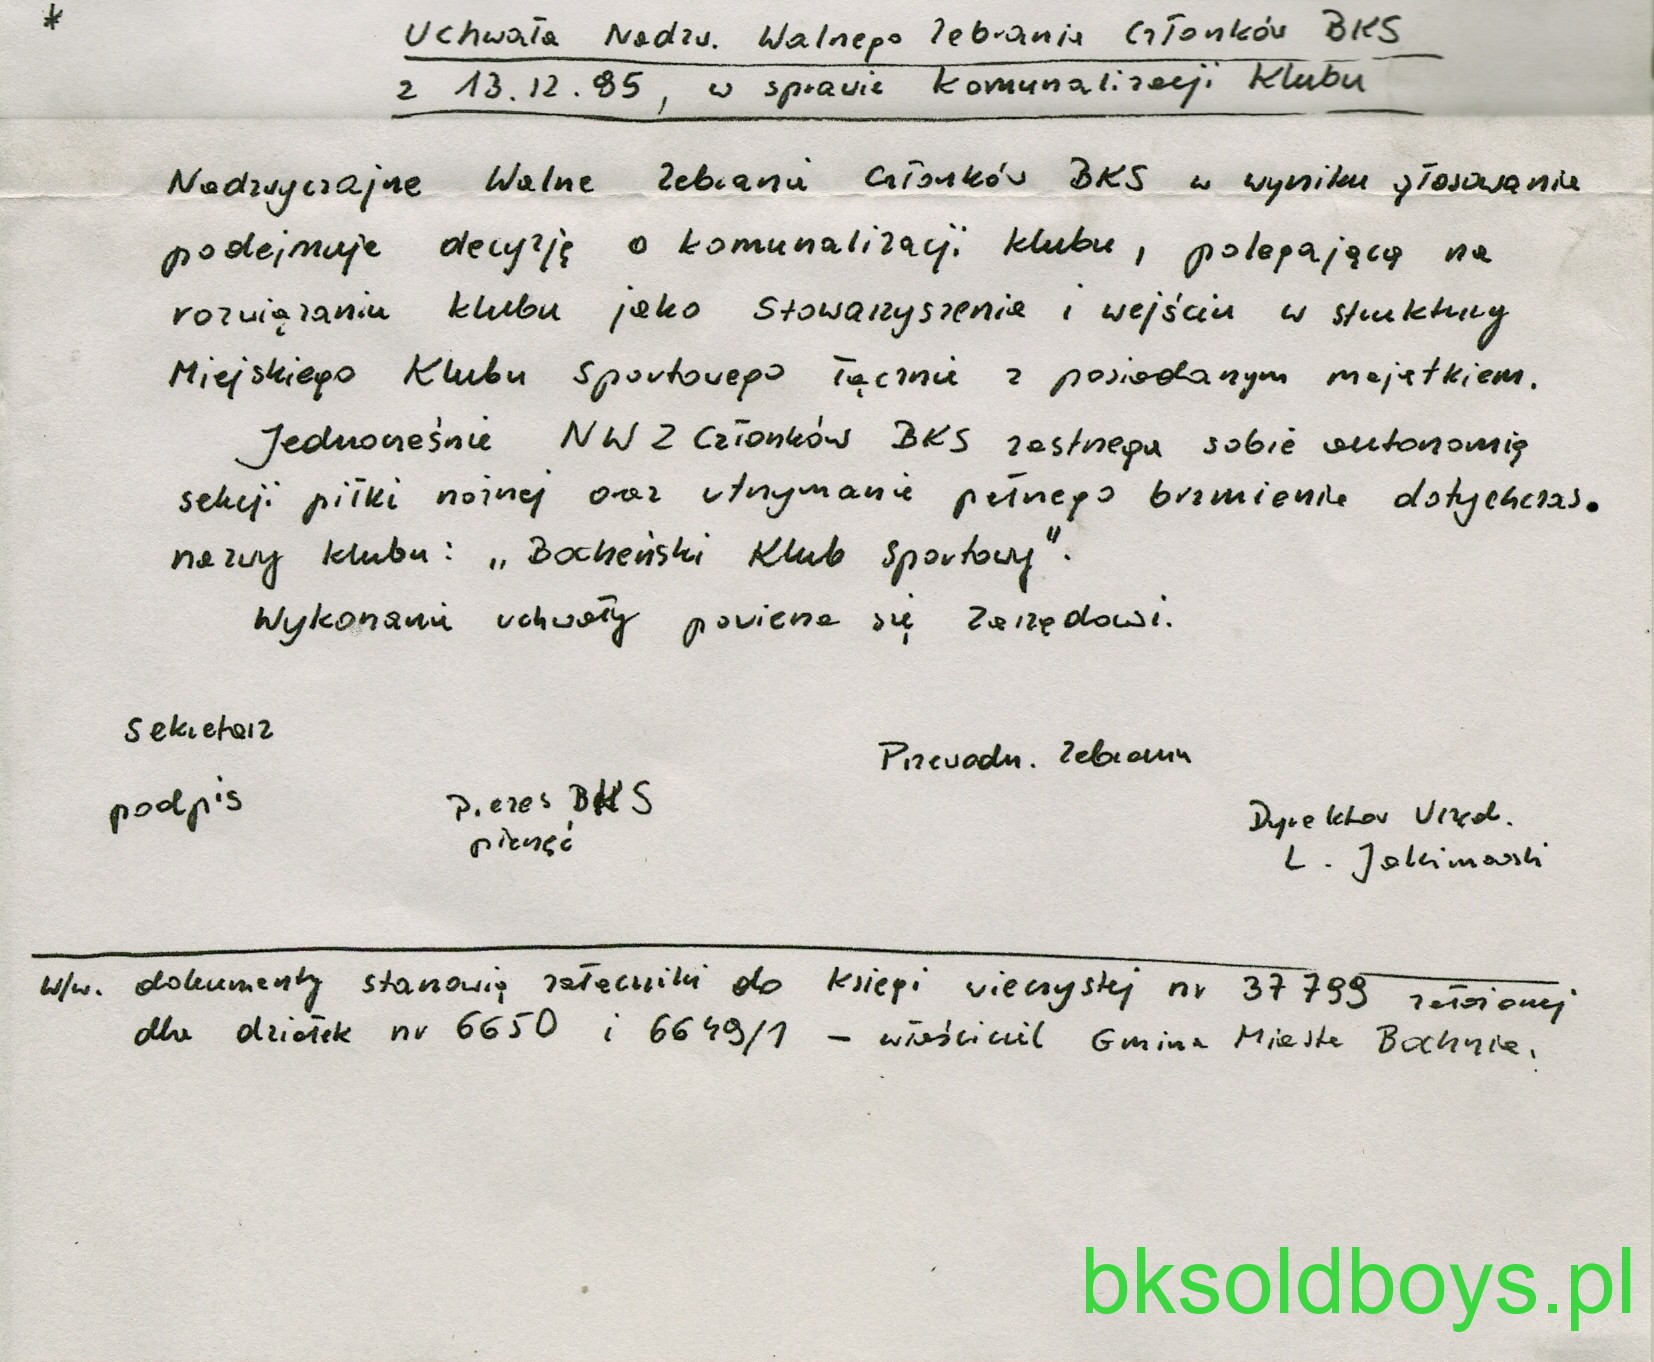 *
Uchwała Nadzw. Walnego Zebrania Członków BKS
z 13.12.95, w sprawie komunalizacji Klubu
Nadzwyczajne Walne Zebranie Członków BKS w wyniku głosowania
podejmuje decyzję o komunalizacji klubu, polegającą na
rozwiązaniu klubu jako Stowarzyszenia i wejściu w struktury
Miejskiego Klubu Sportowego łącznie z posiadanym majątkiem.
Jednocześnie NWZ Członków BKS zastrzega sobie autonomię
sekcji piłki nożnej oraz utrzymanie pełnego brzmienia dotychczas.
nazwy klubu: „Bocheński Klub Sportowy".
Wykonanie uchwały powierza się Zarządowi.
Sekretarz
podpis
Prezes BKS
pieczęć
Przewodn. Zebrania
Dyrektor Urzęd.
L. Jakimowski
W/w. dokumenty stanowią załączniki do Księgi wieczystej nr 37799 założonej
dla działek nr 6650 i 6649/1 – właściciel Gmina Miasta Bochnia.
bksoldboys.pl